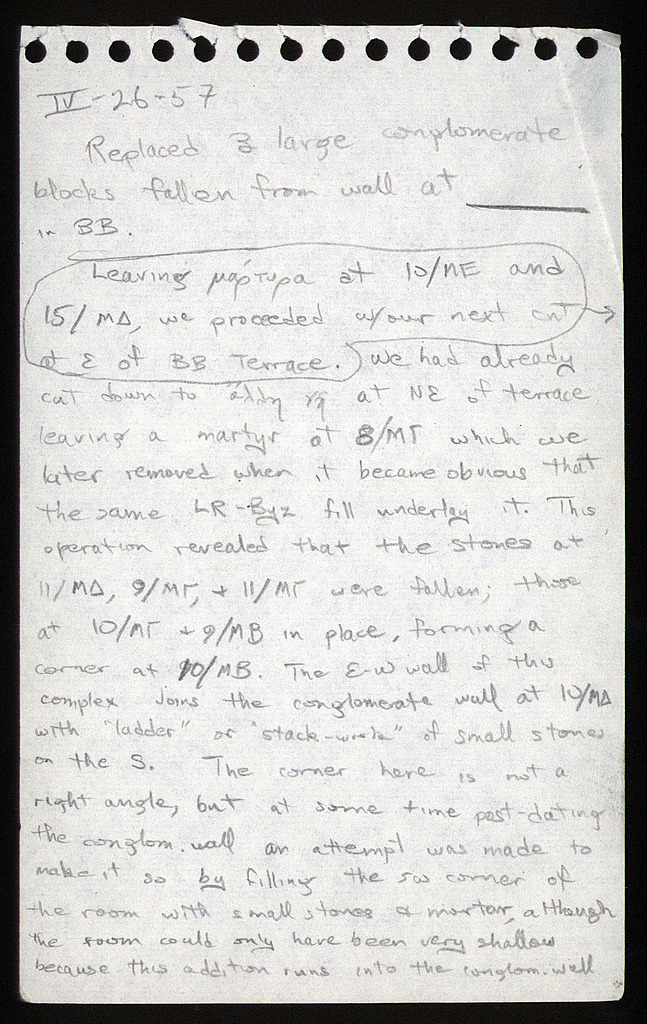 IV-26-57
Replaced 3 large conglomerate
blocks fallen from wall at ______
in BB.
Leaving μάρτυρα at 10/ΜΕ and
15/ΜΔ, we proceeded w/our next cut
at E of BB Terrace. We had already
cut down to at NE of terrace
leaving a martyr at 8/ΜΓ which we
later removed when it became obvious that
the same LR-Byz fill underlay it. This
operation revealed that the stones at
11/ΜΔ, 9/ΜΓ, + 11/ΜΓ were fallen; those
at 10/ΜΓ + 9/ΜΒ in place, forming a
corner at 10/ΜΒ. The E-W wall of this
complex joins the conglomerate wall at 10/ΜΔ
with "ladder" or "stack-work" of small stones
on the S. The corner here is not a
right angle, but at some time post-dating
the conglom. wall an attempt was made to
make it so by filling the sw corner of
the room with small stones & mortar, although
the room could only have been very shallow
because this addition runs into the conglom. wall